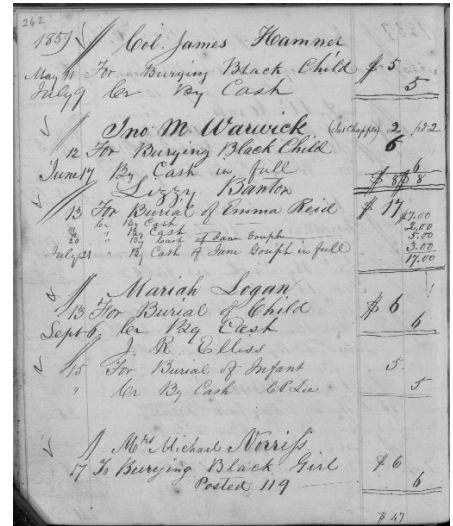 262
1857 Col. James Hamner
May 11 For Burying Black Child $ 5
July 9 Cr By Cash 5
Jno M Warwick 2 pd 2
12 For Burying Black Child 6
June 17 By Cash in full 6
$ 8 $ 8
Lizzy Banton
13 For Burial of Emma Reid $ 17
Cr By Cash $7.00
" By Cash 2.00
20 " By Cash of Jane Gouph 5.00
July 21 By Cash of Jane Gouph in full 3.00
17.00
Mariah Logan
13 For Burial of Child $ 6
Sept 6 Cr By Cash 6
J. R. Elliss
15 For Burial of Infant 5
" Cr By Cash C.P. Lee 5
Mrs Michael Norriss
17 To Burying Black Girl $ 6
Posted 119 6
$ 47